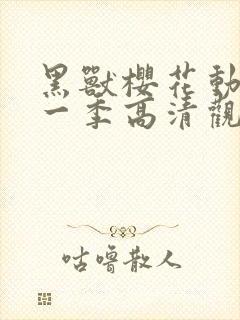 黑獸櫻花動
一季高清觀
咕嚕散人